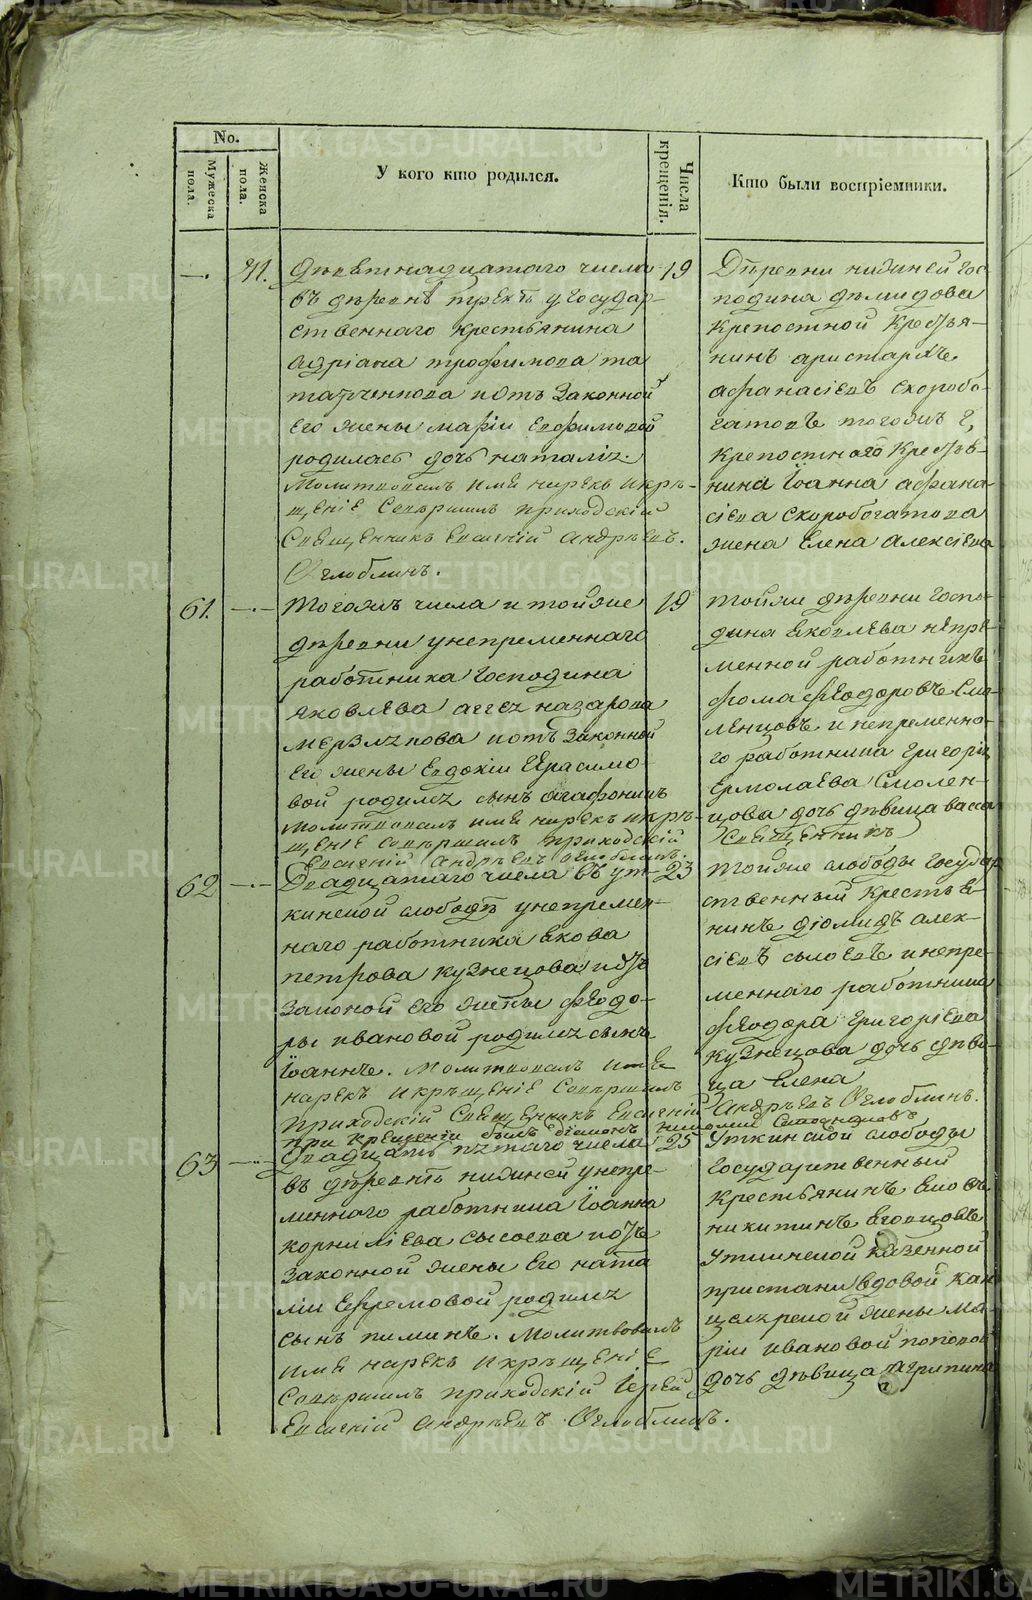 No.
Мужеска пола.
Женска пола.
У кого кто родился.
Числа крещенія.
Кто были воспріемники.
—. 71. Девятнадцатаго числа 19
въ деревнѣ у государ-
ственнаго крестьянина
Адріана трофимова та
татченкова и отъ законной
его жены маріи ефимовой
родилась дочь наталія.
Молитвовалъ имя нарекъ и кре-
щеніе Совершилъ приходскій
Священникъ Евгеній андреевъ
Оглоблинъ.
Деревни нижней гос-
подина демидова
крепостной крестья-
нинъ аристархъ
афанасіевъ скоробо-
гатовъ тогожъ г,
крепостнаго крестья-
нина Іоанна афана-
сіева скоробогатова
жена Елена алексіева
61. —.— Тогожъ числа и тойже 19
деревни у непременнаго
работника господина
яковлева аггея назарова
и отъ законной
его жены Евдокіи Герасимо-
вой родился сынъ агафоникъ
молитвовалъ имя нарекъ и кре-
щеніе совершилъ приходскій
Евгеній андреевъ оглоблинъ.
тойже деревни госпо-
дина яковлева непре-
менной работникъ
фома феодоровъ смо-
ленцовъ и непременна-
го работника григорія
ермолаева смолен-
цова дочь девица васса
священникъ
62 —.— Двадцатаго числа въ ут- 23
кинской слободѣ у непремен-
наго работника якова
петрова кузнецова и отъ
законой его жены феодо-
ры ивановой родился сынъ
Іоаннъ. молитвовалъ имя
нарекъ и крещеніе Совершилъ
приходскій Священникъ Евгеній андреевъ Оглоблинъ.
при крещеніи былъ діаконъ
тойже слободы государ-
ственный крестья-
нинъ діомидъ алек-
сіевъ сысоевъ и непре-
меннаго работника
феодора григоріева
кузнецова дочь деви-
ца елена
63 —.— Двадцать пятаго числа 25
въ деревнѣ нижней у непре-
меннаго работника Іоанна
корниліева сысоева и отъ
законной жены его ната
ліи Ефремовой родился
сынъ пименъ. молитвовалъ
имя нарекъ и крещеніе
Совершилъ приходскій Іерей
Евгеній андреевъ Оглоблинъ.
Уткинской слободы
государственный
крестьянинъ яковъ
никитинъ
уткинской казенной
пристани вдовой кан
целярской жены ма-
ріи ивановой поповой
дочь девица агрипина
METRIKI.GASO-URAL.RU